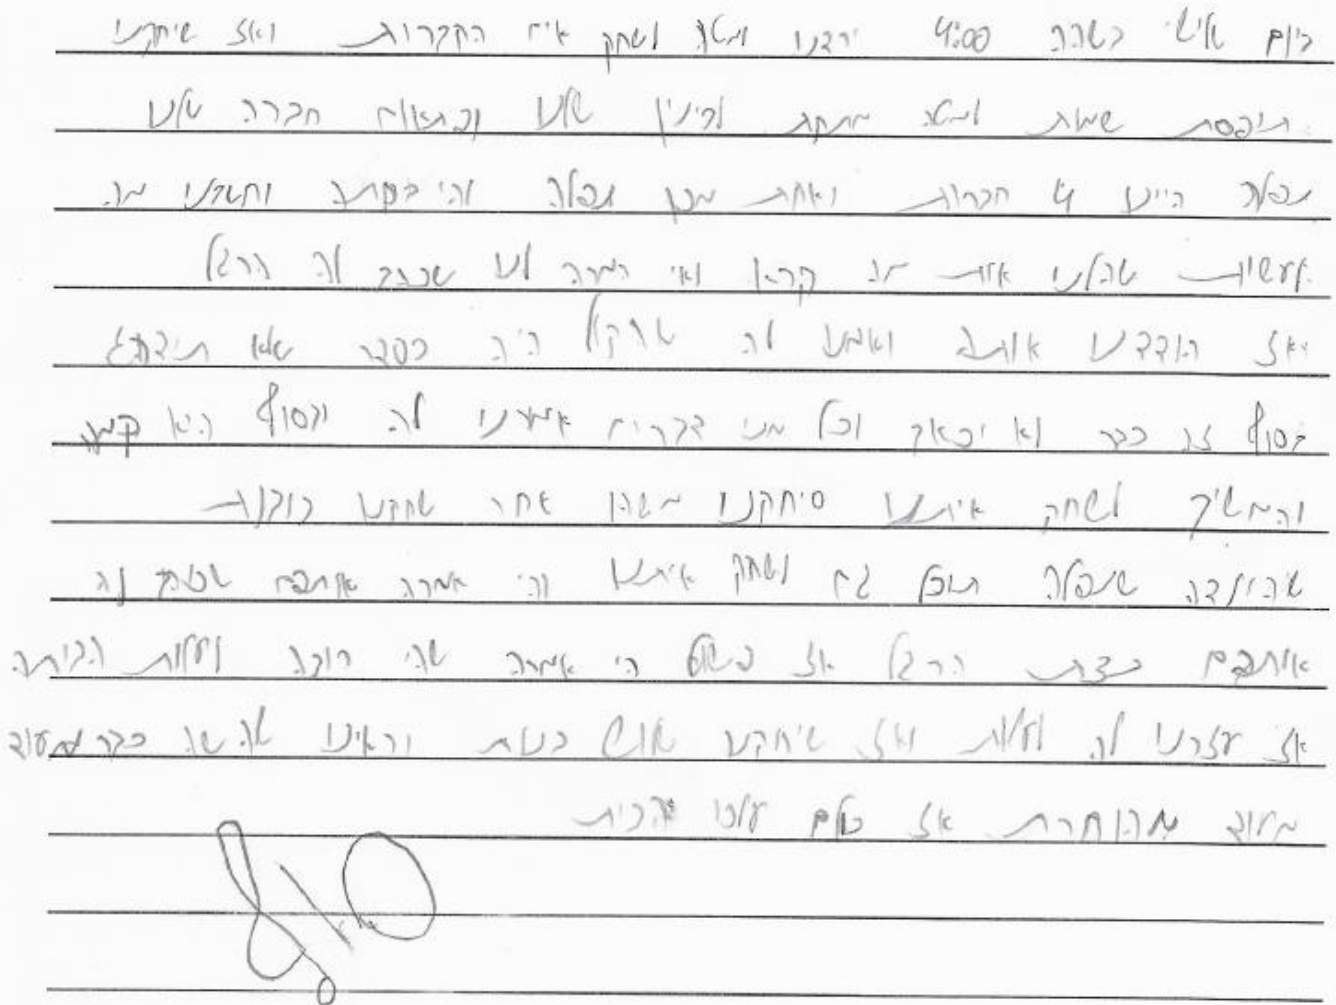 ביום שישי בשהה 4:00 ירדנו למטה לשחק אים החברות ואז שיחקנו
תיפסת שמות למטה מתחת לבינין שלנו ופתאום חברה שלנו
נפלה היינו 4 חברות ואחת מכן נפלה והי בכתה וחשבנו מה
לעשות שהלנו אות מה קרא והי המרה לנו שכהב לה הרגל
ואז הודדנו אותה ואמנו לה שהקל היה בסדר שלא תידהג
בסוף זה כבר לא יכאב וכל מני דברים אמרנו לה ובסוף היא קמה
והמשיך לשחק איתנו סיחקנו משהו אחר שחקנו בובות
שהילדה שנפלה תוכל גם לשחק איתנו והי אמרה אותכם שכוהב לה
אותכם כצת הרגל אז פשוט הי אמרה שהי רוכה לעלות הביתה
אז עזרנו לה לעלות ואז שיחקנו שלוש בנות וראינו שהשה כבר מעוד
מעוד מהוחרת אז כולם עלכו הבית
סוף